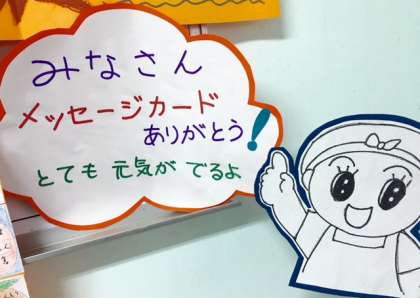 みなさん
メッセージカード
ありがとう!
とても 元気が でるよ